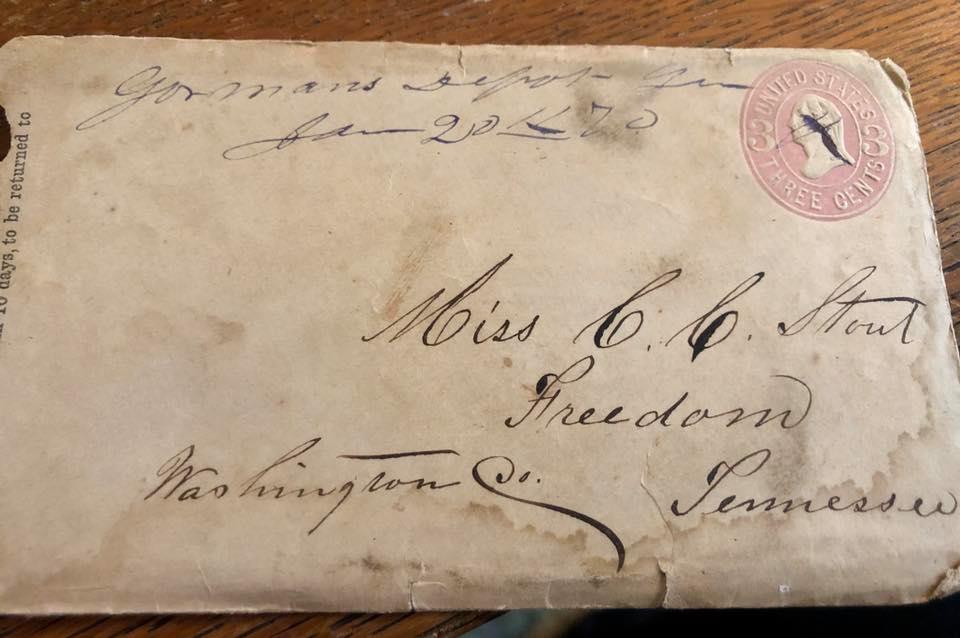 Gormans Depot Ten
Jan 20th 70
UNITED STATES
3 3
THREE CENTS
Miss C. C. Stout
Freedom
Washington Co.
Tennessee
10 days, to be returned to